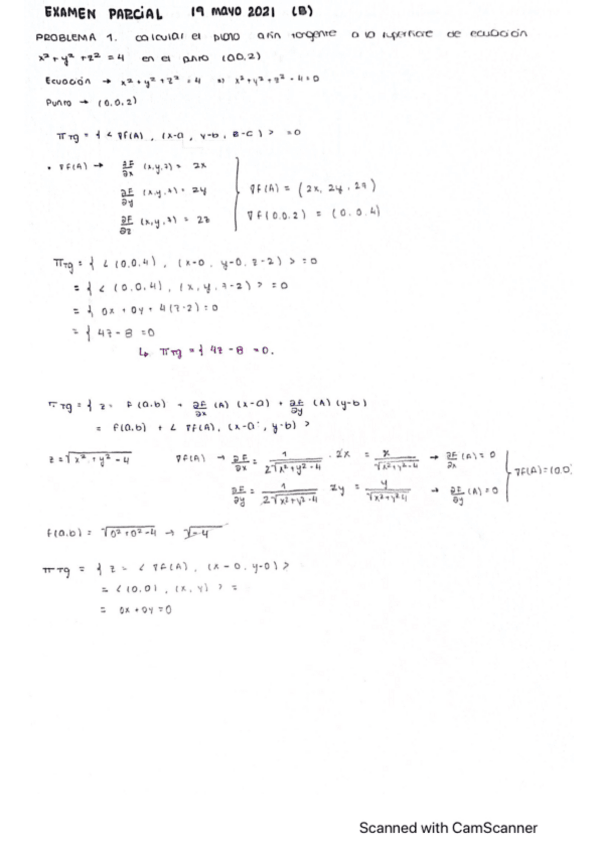 EXAMEN PARCIAL 19 MAYO 2021 (B)
PROBLEMA 1. calcular el plano afín tangente a la superficie de ecuación
x² + y² + z² = 4 en el punto (0,0,2)
Ecuación → x² + y² + z² = 4 ⇒ x² + y² + z² - 4 = 0
Punto → (0,0,2)
π Tg = { < ∇F(A), (x-a, y-b, z-c) > = 0
• ∇F(A) → ∂F/∂x (x,y,z) = 2x
∂F/∂y (x,y,z) = 2y
∂F/∂z (x,y,z) = 2z
∇F(A) = (2x, 2y, 2z)
∇F(0,0,2) = (0,0,4)
π Tg = { < (0,0,4), (x-0, y-0, z-2) > = 0
= { < (0,0,4), (x, y, z-2) > = 0
= { 0x + 0y + 4(z-2) = 0
= { 4z - 8 = 0
↳ π Tg = { 4z - 8 = 0.
π Tg = { z = F(a,b) + ∂F/∂x (A) (x-a) + ∂F/∂y (A) (y-b)
= F(a,b) + < ∇F(A), (x-a, y-b) >
z = √x² + y² - 4 ∇F(A) → ∂F/∂x = 1/2√x²+y²-4 · 2x = x/√x²+y²-4 → ∂F/∂x (A) = 0
∂F/∂y = 1/2√x²+y²-4 2y = y/√x²+y²-4 → ∂F/∂y (A) = 0
∇F(A) = (0,0)
F(a,b) = √0² + 0² - 4 → √-4
π Tg = { z = < ∇F(A), (x-0, y-0) >
= < (0,0), (x, y) > =
= 0x + 0y = 0
Scanned with CamScanner